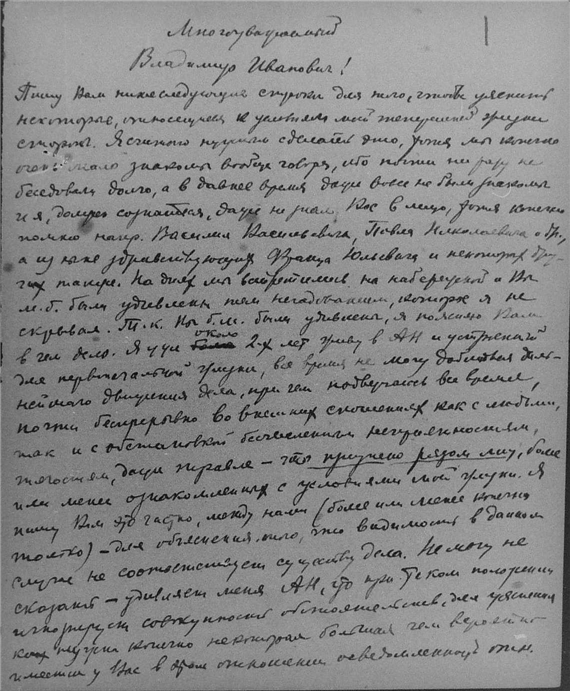 Многоуважаемый
Владимир Иванович!
Пишу Вам нижеследующие строки для того, чтобы уяснить
некоторые, относящиеся к условиям моей теперешней жизни
стороны. Я считаю нужным сделать это, хотя мы конечно
очень мало знакомы вообще говоря, ибо почти ни разу не
беседовали долго, а в давнее время даже вовсе не были знакомы
и я, должен сознаться, даже не знал Вас в лицо, хотя конечно
помню напр. Василия Васильевича, Павла Николаевича и др.,
а из ныне здравствующих Франца Юльевича и некоторых дру-
гих также. На днях мы встретились на набережной и Вы
м.б. были удивлены тем негодованием, которое я не
скрывал. Т.к. Вы б.м. были удивлены, я поясняю Вам
в чем дело. Я уже около 2-х лет живу в АН и устроенный
для первоначальной жизни, все время не могу добиться даль-
нейшего движения дела, при чем подвергаюсь все время,
почти беспрерывно во внешних сношениях как с людьми,
так и с обстановкой бесчисленным неприятностям,
тягостям, даже травле – это признано рядом лиц, более
или менее ознакомленных с условиями моей жизни. Я
пишу Вам это частно, между нами (более или менее конечно
только) – для объяснения того, что видимость в данном
случае не соответствует существу дела. Не могу не
сказать – удивляет меня АН, что при таком положении
игнорирует совокупность обстоятельств, для уяснения
нужна конечно некоторая большая чем вероятно
имеется у Вас в этом отношении осведомленность